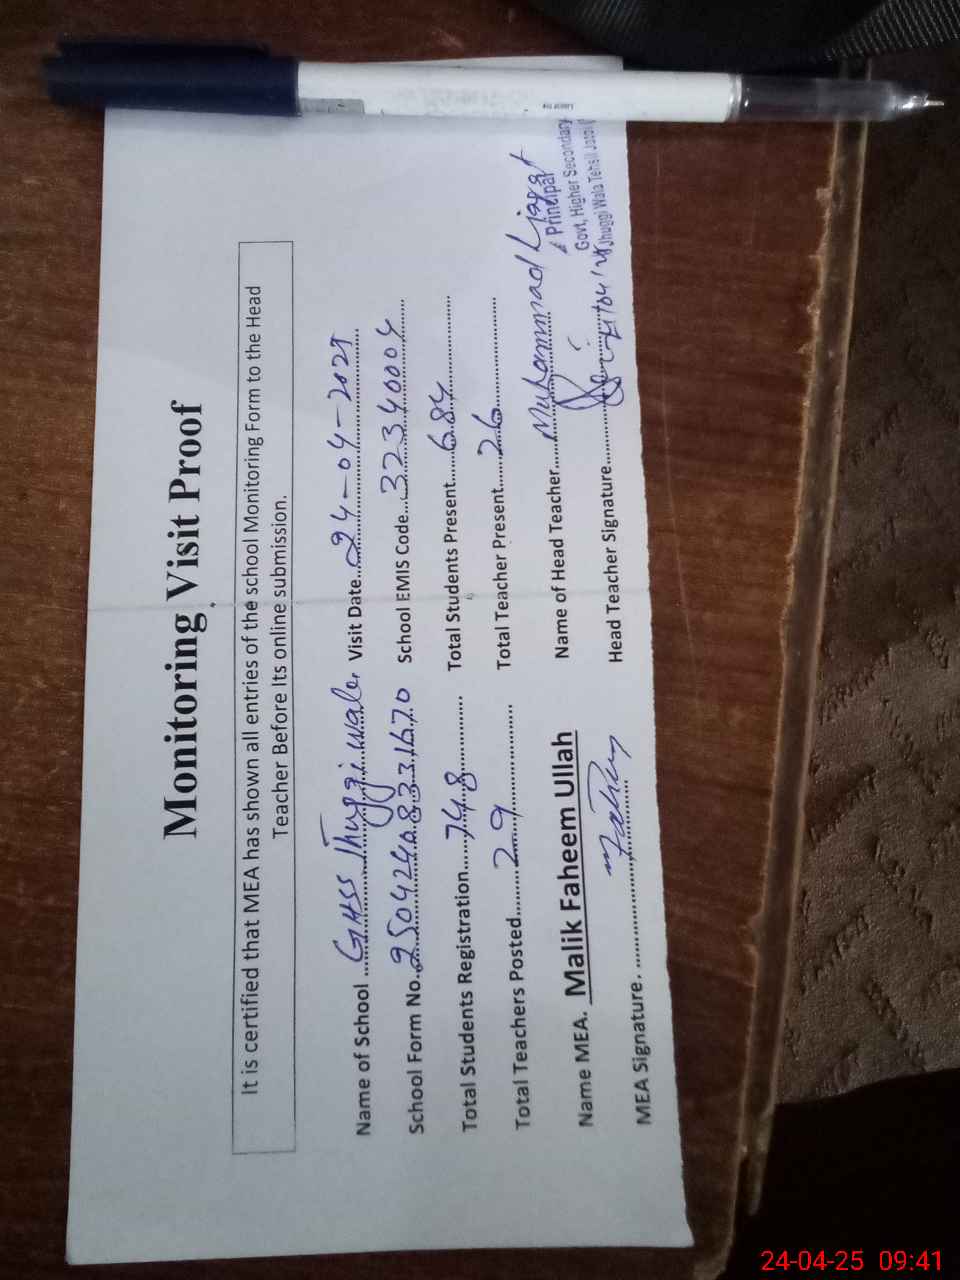 Monitoring Visit Proof
It is certified that MEA has shown all entries of the school Monitoring Form to the Head
Teacher Before Its online submission.
Name of School GHSS Jhuggi wala Visit Date 24-04-2025
School Form No. 25042408331670 School EMIS Code 32340004
Total Students Registration 748 Total Students Present 684
Total Teachers Posted 29 Total Teacher Present 26
Name MEA. Malik Faheem Ullah Name of Head Teacher Muhammad Liaqat
MEA Signature. Faheem Head Teacher Signature
Principal
Govt, Higher Secondary
Jhuggi Wala Tehsil Jatoi
24-04-25 09:41